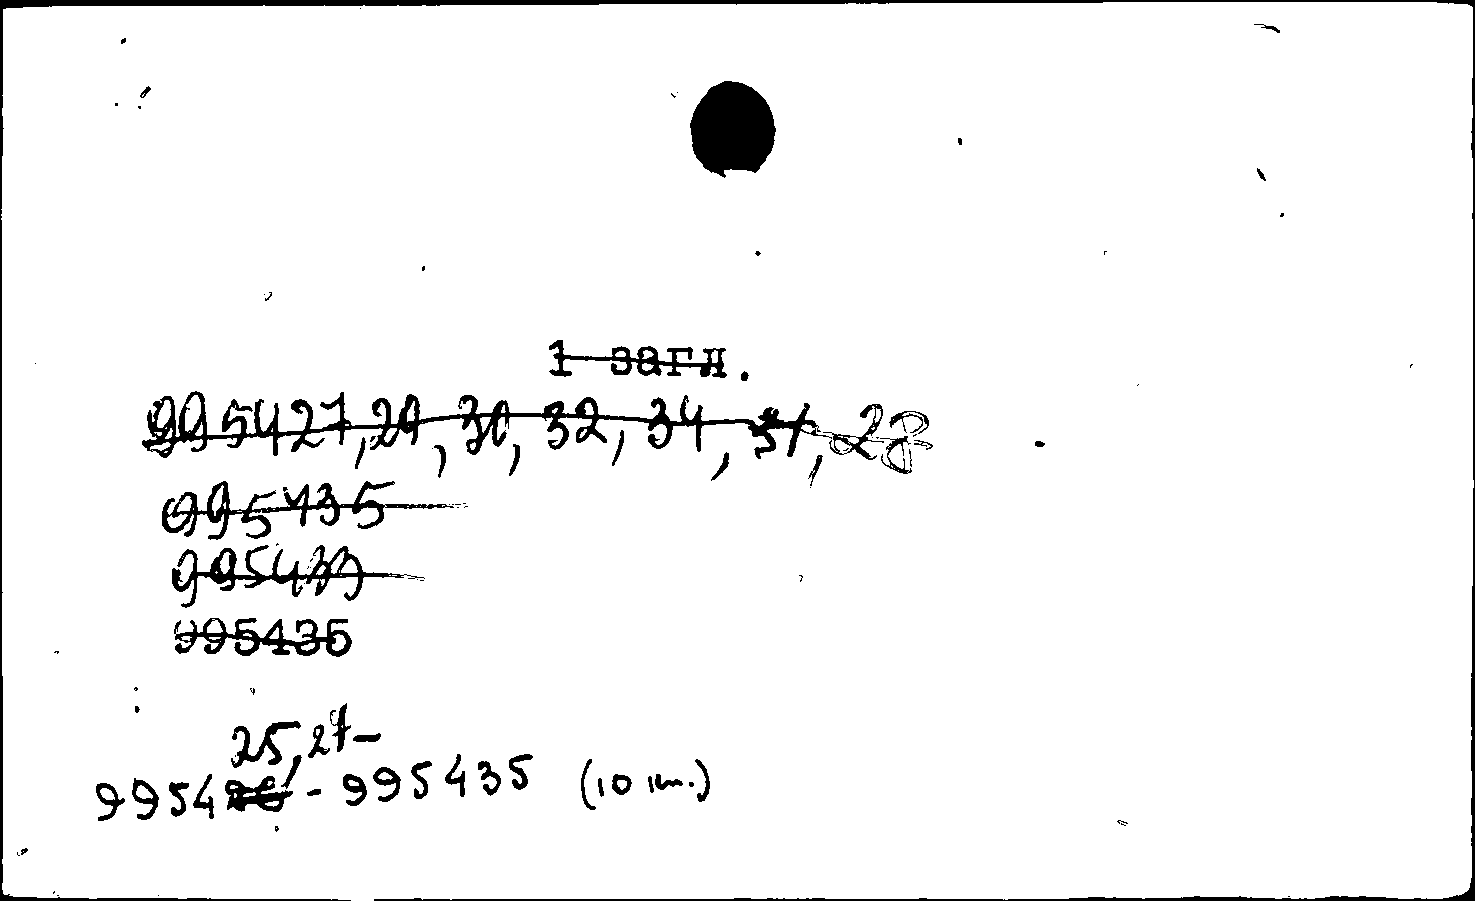 1 загл.
995427, 29, 30, 32, 34, 31, 28
995435
995433
995435
25, 27-
995426 - 995435 (10 кн.)